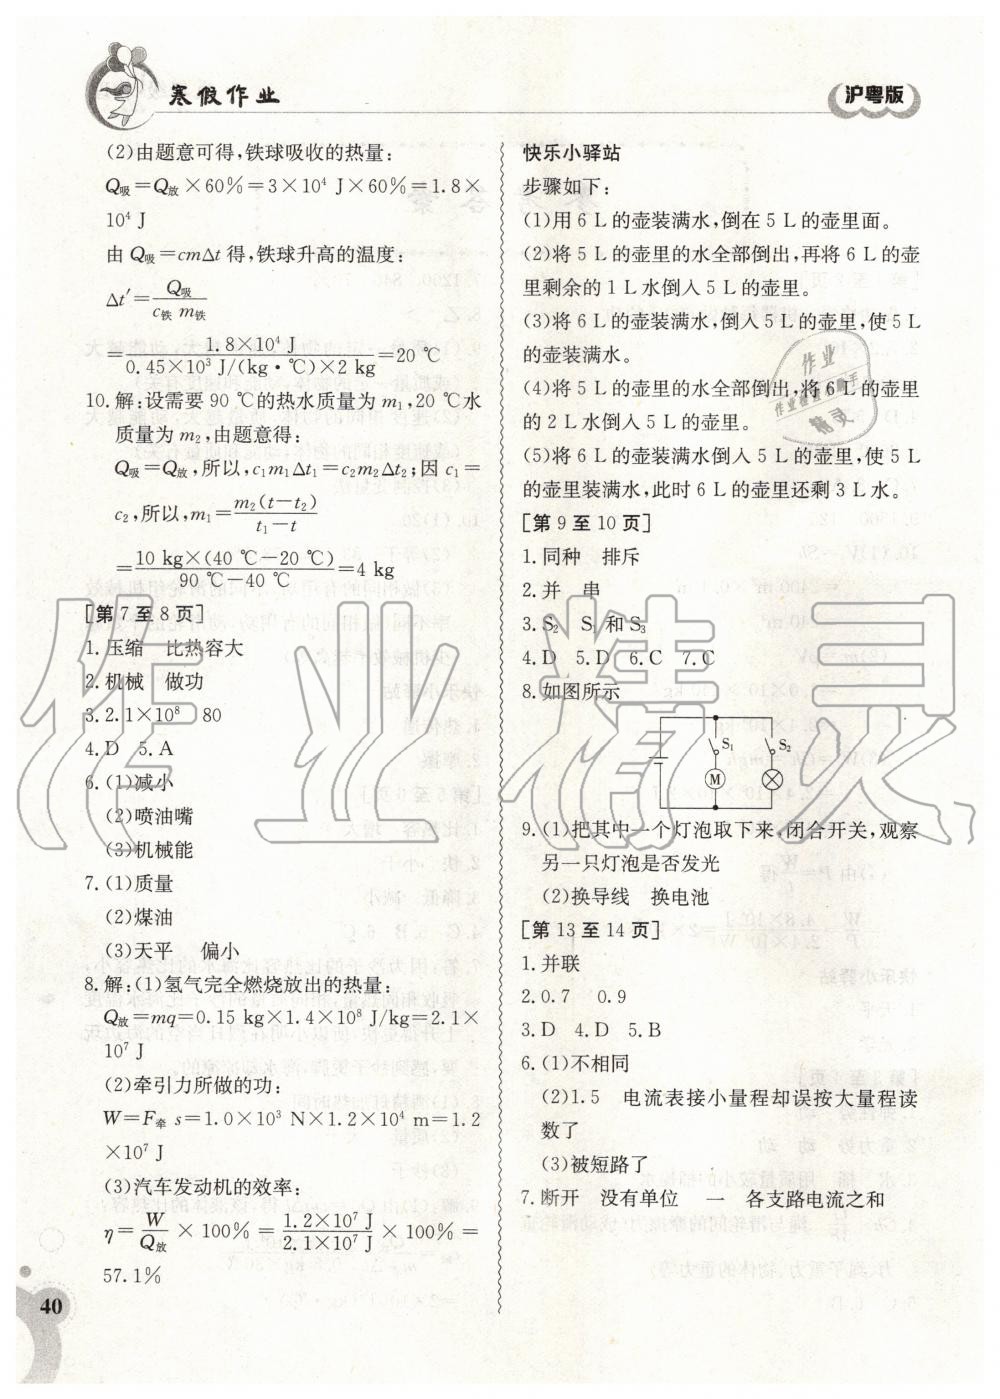 寒假作业
沪粤版
(2)由题意可得,铁球吸收的热量:
Q吸=Q放×60%=3×10⁴ J×60%=1.8×
10⁴ J
由 Q吸=cmΔt 得,铁球升高的温度:
Δt′=Q吸/(c铁 m铁)
=1.8×10⁴ J/(0.45×10³ J/(kg·℃)×2 kg)=20 ℃
10.解:设需要 90 ℃的热水质量为 m₁,20 ℃水
质量为 m₂,由题意得:
Q吸=Q放,所以,c₁m₁Δt₁=c₂m₂Δt₂;因 c₁=
c₂,所以,m₁=m₂(t-t₂)/(t₁-t)
=10 kg×(40 ℃-20 ℃)/(90 ℃-40 ℃)=4 kg
[第 7 至 8 页]
1.压缩 比热容大
2.机械 做功
3.2.1×10⁸ 80
4.D 5.A
6.(1)减小
(2)喷油嘴
(3)机械能
7.(1)质量
(2)煤油
(3)天平 偏小
8.解:(1)氢气完全燃烧放出的热量:
Q放=mq=0.15 kg×1.4×10⁸ J/kg=2.1×
10⁷ J
(2)牵引力所做的功:
W=F牵 s=1.0×10³ N×1.2×10⁴ m=1.2
×10⁷ J
(3)汽车发动机的效率:
η=W/Q放×100%=1.2×10⁷ J/2.1×10⁷ J×100%=
57.1%
40
快乐小驿站
步骤如下:
(1)用 6 L 的壶装满水,倒在 5 L 的壶里面。
(2)将 5 L 的壶里的水全部倒出,再将 6 L 的壶
里剩余的 1 L 水倒入 5 L 的壶里。
(3)将 6 L 的壶装满水,倒入 5 L 的壶里,使 5 L
的壶装满水。
(4)将 5 L 的壶里的水全部倒出,将 6 L 的壶里
的 2 L 水倒入 5 L 的壶里。
(5)将 6 L 的壶装满水倒入 5 L 的壶里,使 5 L
的壶里装满水,此时 6 L 的壶里还剩 3 L 水。
[第 9 至 10 页]
1.同种 排斥
2.并 串
3.S₂ S₁ 和 S₃
4.D 5.D 6.C 7.C
8.如图所示
S₁
S₂
M
9.(1)把其中一个灯泡取下来,闭合开关,观察
另一只灯泡是否发光
(2)换导线 换电池
[第 13 至 14 页]
1.并联
2.0.7 0.9
3.D 4.D 5.B
6.(1)不相同
(2)1.5 电流表接小量程却误按大量程读
数了
(3)被短路了
7.断开 没有单位 一 各支路电流之和
作业精灵